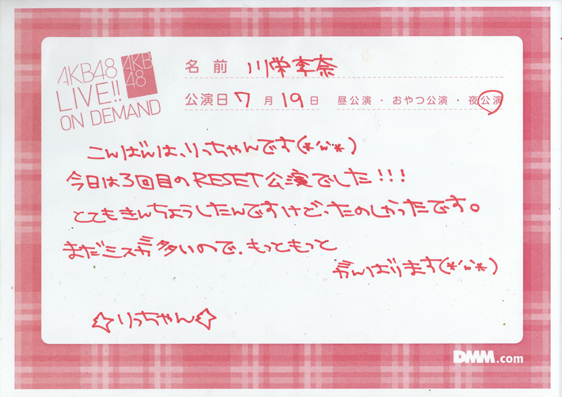 AKB48
LIVE!!
ON DEMAND
AKB
48
名前 川栄李奈
公演日 7月19日 昼公演・おやつ公演・夜公演
こんばんは、りっちゃんです(*'ω'*)
今日は3回目のRESET公演でした!!!
とてもきんちょうしたんですけど、たのしかったです。
まだミスが多いので、もっともっと
がんばります(*'ω'*)
☆りっちゃん☆
DMM.com